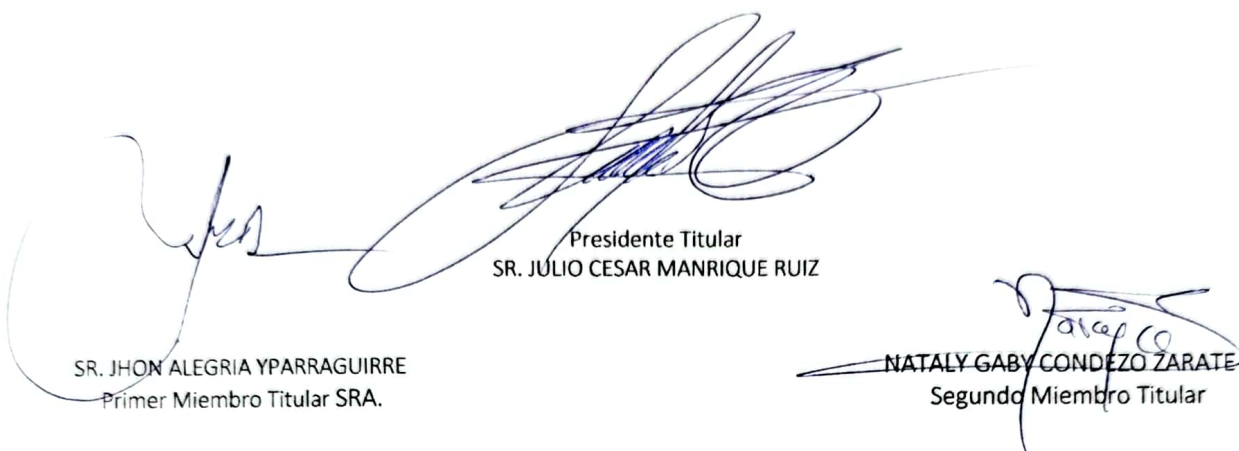 Presidente Titular
SR. JULIO CESAR MANRIQUE RUIZ
SR. JHON ALEGRIA YPARRAGUIRRE
Primer Miembro Titular SRA.
NATALY GABY CONDEZO ZARATE
Segundo Miembro Titular